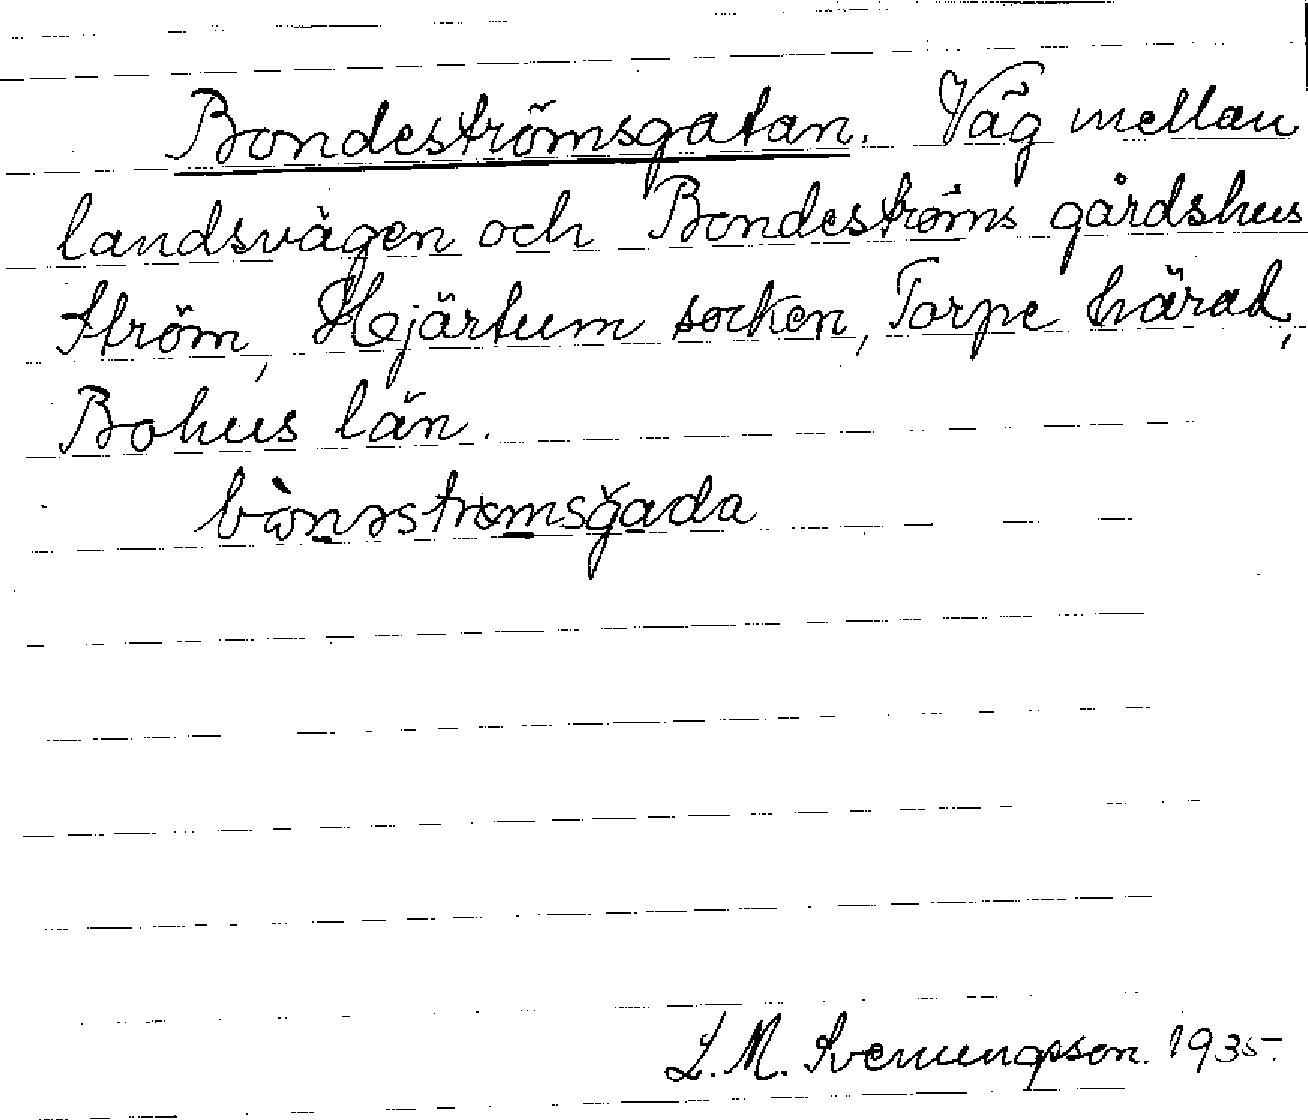 Bondeströmsgatan. Väg mellan
landsvägen och Bondeströms gårdshus
Ström, Hjärtum socken, Torpe härad,
Bohus län.
L. M. Svenungsson. 1935.